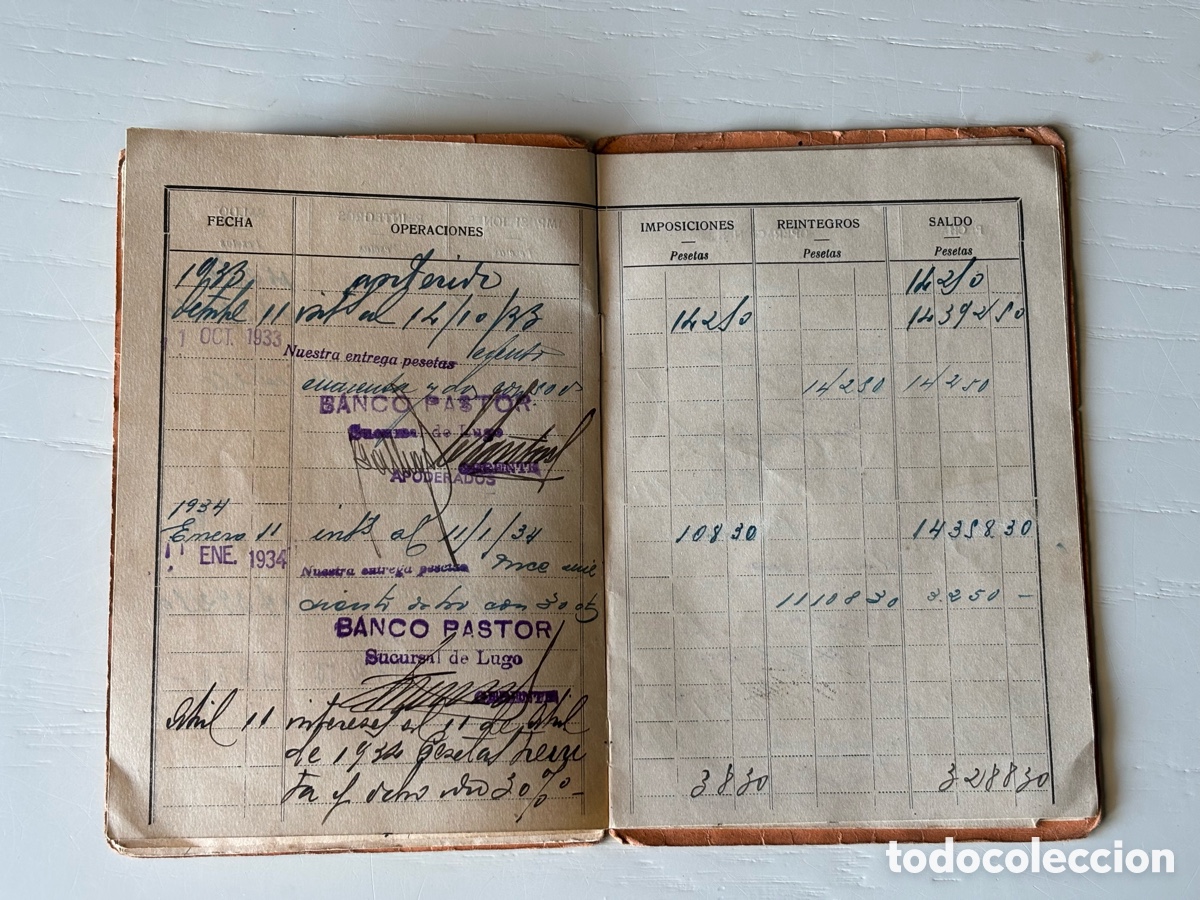 FECHA OPERACIONES IMPOSICIONES REINTEGROS SALDO
Pesetas Pesetas Pesetas
1933 14250
11 al 14/10/33 14250 1439250
1 OCT. 1933
Nuestra entrega pesetas ciento
cuarenta y dos 14250 14250
BANCO PASTOR
Sucursal de Lugo
GERENTE
APODERADOS
1934
Enero 11 ints al 11/1/34 10830 1435830
11 ENE. 1934
Nuestra entrega pesetas once mil
ciento ocho con 30 cts 1110830 3.250 -
BANCO PASTOR
Sucursal de Lugo
GERENTE
Abril 11 intereses al 11 de Abril
de 1934 Pesetas trein
ta y ocho 30% 3830 328830
todocoleccion